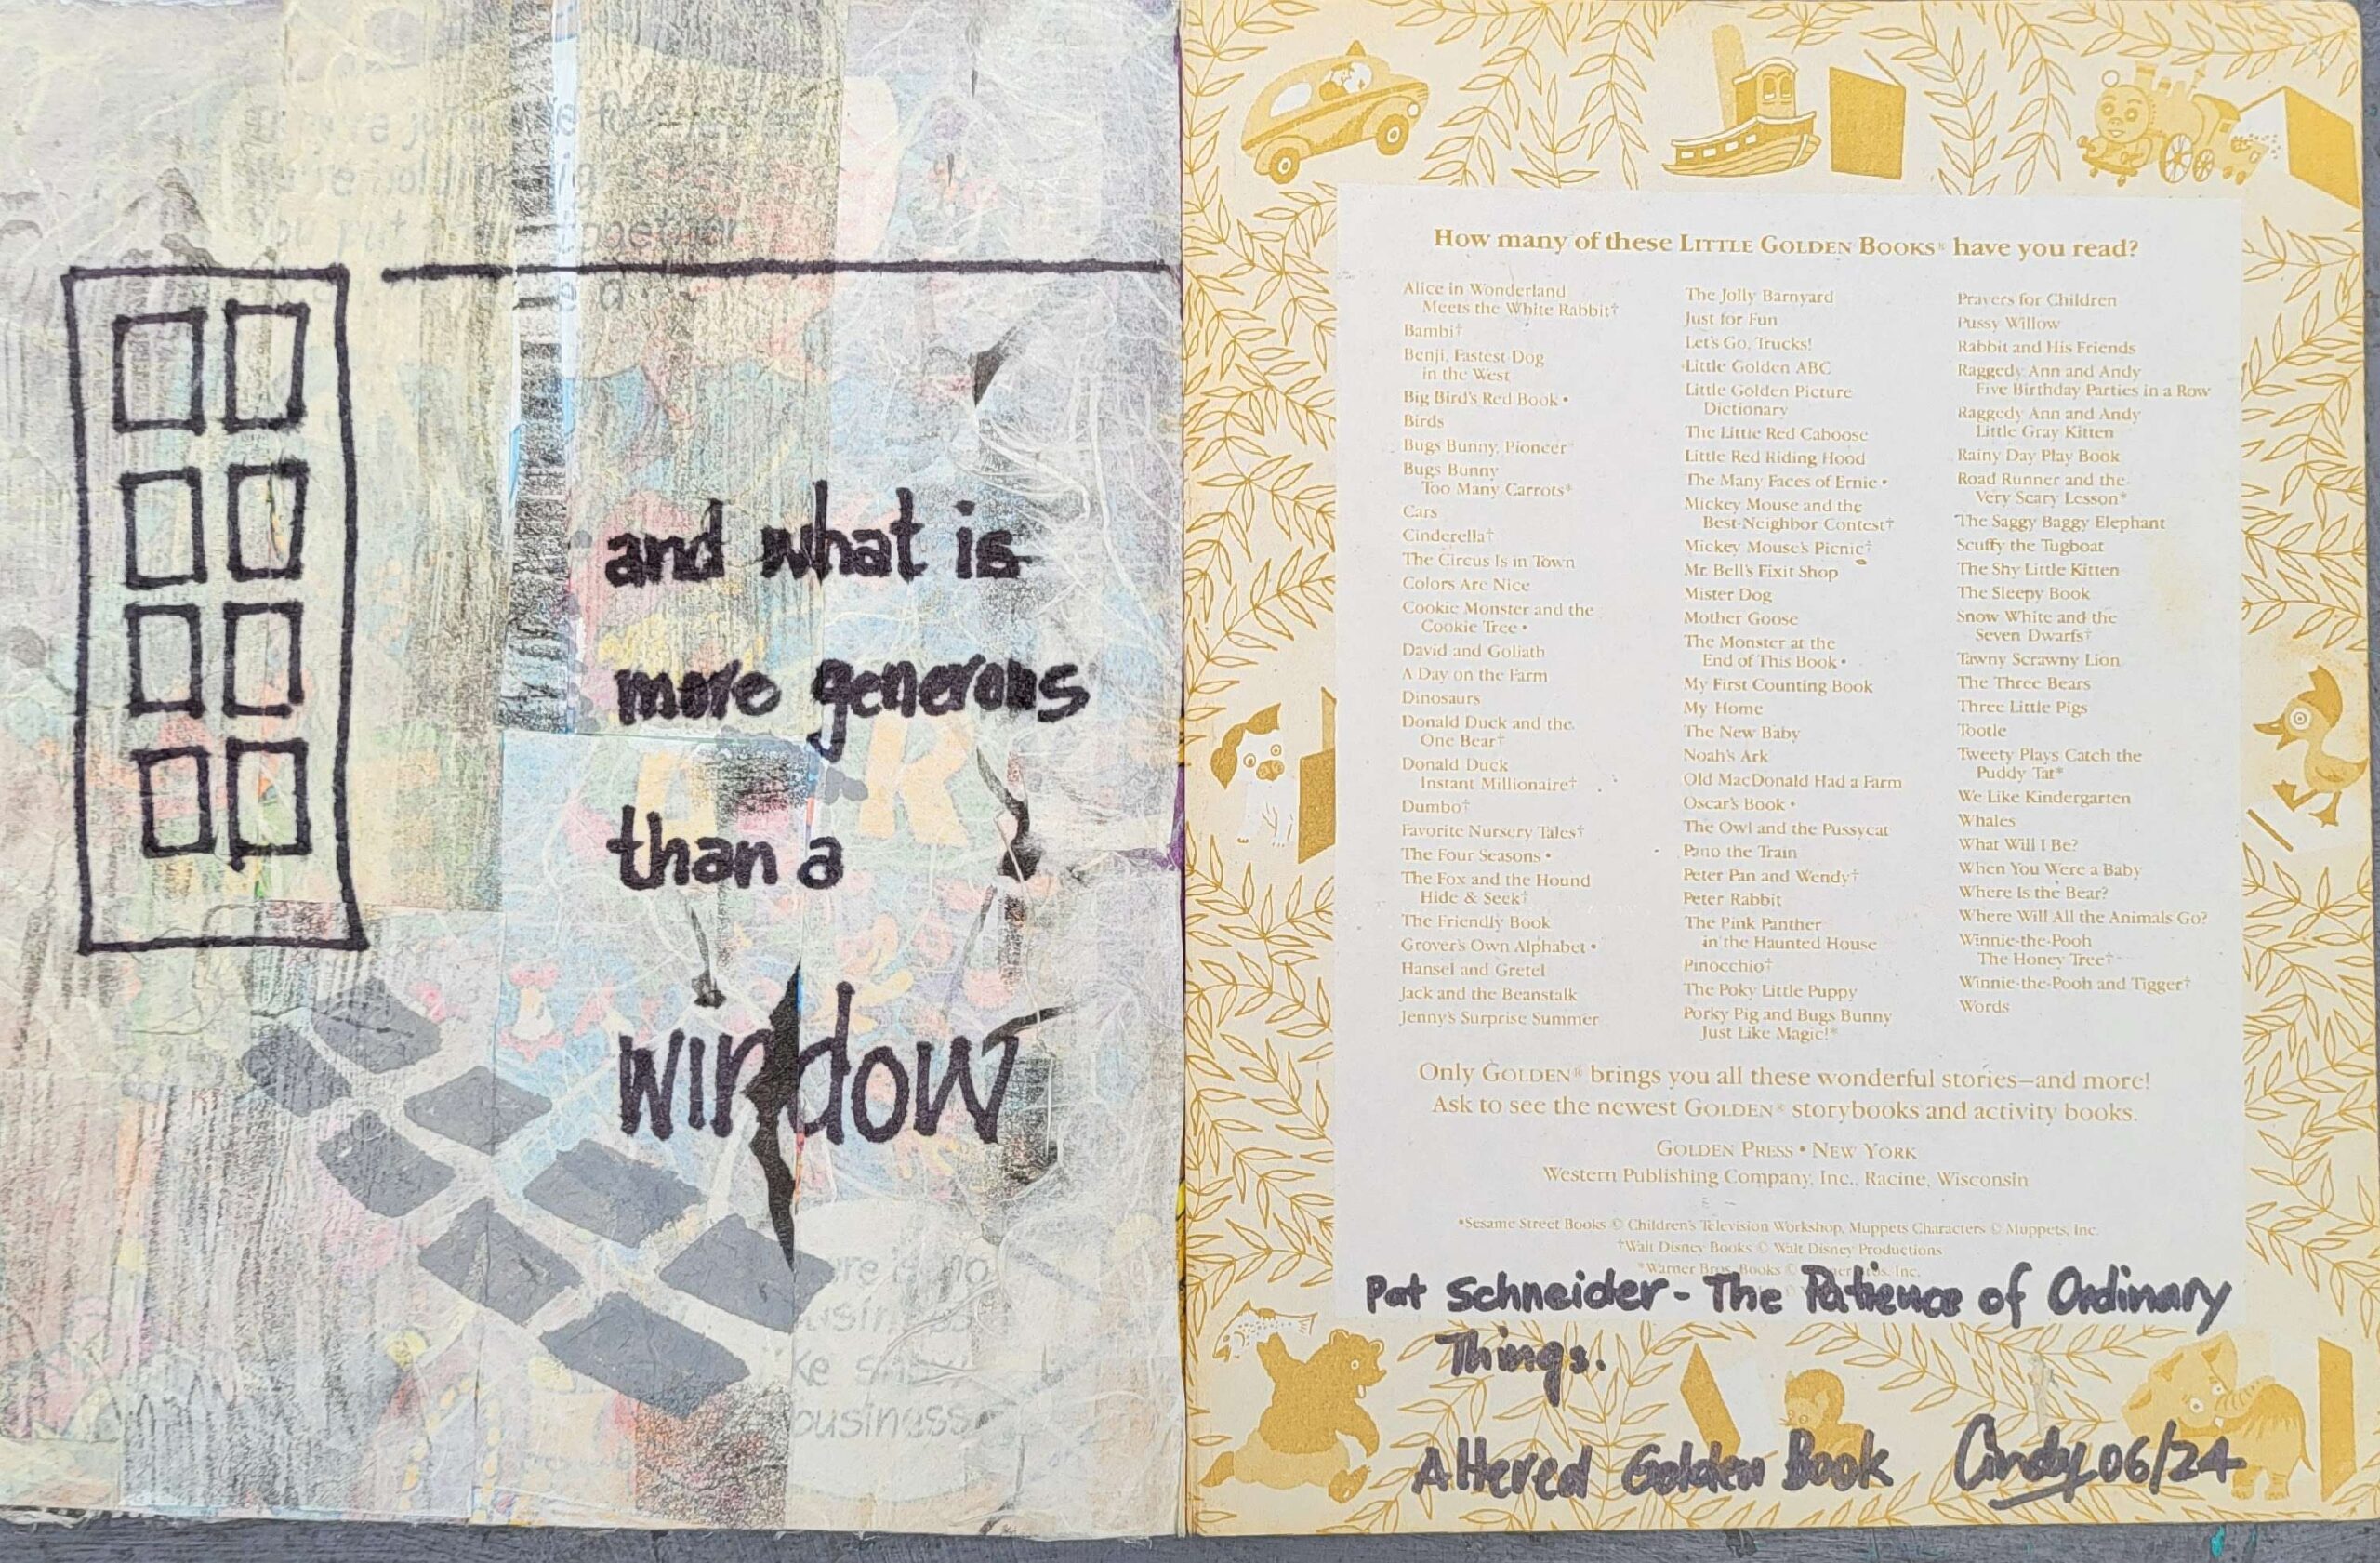 and what is
more generous
than a
window
re is no
usiness
ke show
business
How many of these LITTLE GOLDEN BOOKS® have you read?
Alice in Wonderland
Meets the White Rabbit†
Bambi†
Benji, Fastest Dog
in the West
Big Bird's Red Book •
Birds
Bugs Bunny, Pioneer*
Bugs Bunny
Too Many Carrots*
Cars
Cinderella†
The Circus Is in Town
Colors Are Nice
Cookie Monster and the
Cookie Tree •
David and Goliath
A Day on the Farm
Dinosaurs
Donald Duck and the
One Bear†
Donald Duck
Instant Millionaire†
Dumbo†
Favorite Nursery Tales†
The Four Seasons •
The Fox and the Hound
Hide & Seek†
The Friendly Book
Grover's Own Alphabet •
Hansel and Gretel
Jack and the Beanstalk
Jenny's Surprise Summer
The Jolly Barnyard
Just for Fun
Let's Go, Trucks!
Little Golden ABC
Little Golden Picture
Dictionary
The Little Red Caboose
Little Red Riding Hood
The Many Faces of Ernie •
Mickey Mouse and the
Best-Neighbor Contest†
Mickey Mouse's Picnic†
Mr. Bell's Fixit Shop
Mister Dog
Mother Goose
The Monster at the
End of This Book •
My First Counting Book
My Home
The New Baby
Noah's Ark
Old MacDonald Had a Farm
Oscar's Book •
The Owl and the Pussycat
Pano the Train
Peter Pan and Wendy†
Peter Rabbit
The Pink Panther
in the Haunted House
Pinocchio†
The Poky Little Puppy
Porky Pig and Bugs Bunny
Just Like Magic!*
Prayers for Children
Pussy Willow
Rabbit and His Friends
Raggedy Ann and Andy
Five Birthday Parties in a Row
Raggedy Ann and Andy
Little Gray Kitten
Rainy Day Play Book
Road Runner and the
Very Scary Lesson*
The Saggy Baggy Elephant
Scuffy the Tugboat
The Shy Little Kitten
The Sleepy Book
Snow White and the
Seven Dwarfs†
Tawny Scrawny Lion
The Three Bears
Three Little Pigs
Tootle
Tweety Plays Catch the
Puddy Tat*
We Like Kindergarten
Whales
What Will I Be?
When You Were a Baby
Where Is the Bear?
Where Will All the Animals Go?
Winnie-the-Pooh
The Honey Tree†
Winnie-the-Pooh and Tigger†
Words
Only GOLDEN® brings you all these wonderful stories—and more!
Ask to see the newest GOLDEN® storybooks and activity books.
GOLDEN PRESS • NEW YORK
Western Publishing Company, Inc., Racine, Wisconsin
•Sesame Street Books © Children's Television Workshop, Muppets Characters © Muppets, Inc.
†Walt Disney Books © Walt Disney Productions
*Warner Bros. Books © Bros. Inc.
Pat Schneider - The Patience of Ordinary
Things.
Altered Golden Book Cindy 06/24